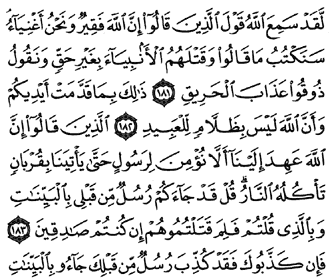 لَّقَدْ سَمِعَ اللَّهُ قَوْلَ الَّذِينَ قَالُوا إِنَّ اللَّهَ فَقِيرٌ وَنَحْنُ أَغْنِيَاءُ
سَنَكْتُبُ مَا قَالُوا وَقَتْلَهُمُ الْأَنبِيَاءَ بِغَيْرِ حَقٍّ وَنَقُولُ
ذُوقُوا عَذَابَ الْحَرِيقِ ١٨١ ذَٰلِكَ بِمَا قَدَّمَتْ أَيْدِيكُمْ
وَأَنَّ اللَّهَ لَيْسَ بِظَلَّامٍ لِّلْعَبِيدِ ١٨٢ الَّذِينَ قَالُوا إِنَّ
اللَّهَ عَهِدَ إِلَيْنَا أَلَّا نُؤْمِنَ لِرَسُولٍ حَتَّىٰ يَأْتِيَنَا بِقُرْبَانٍ
تَأْكُلُهُ النَّارُ ۗ قُلْ قَدْ جَاءَكُمْ رُسُلٌ مِّن قَبْلِي بِالْبَيِّنَاتِ
وَبِالَّذِي قُلْتُمْ فَلِمَ قَتَلْتُمُوهُمْ إِن كُنتُمْ صَادِقِينَ ١٨٣
فَإِن كَذَّبُوكَ فَقَدْ كُذِّبَ رُسُلٌ مِّن قَبْلِكَ جَاءُو بِالْبَيِّنَاتِ